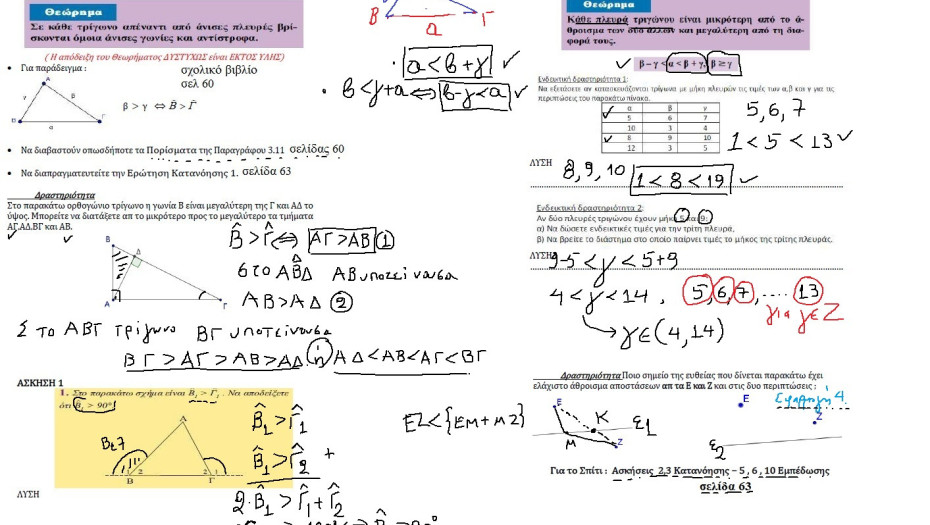 Θεώρημα
Σε κάθε τρίγωνο απέναντι από άνισες πλευρές βρί-
σκονται όμοια άνισες γωνίες και αντίστροφα.
( Η απόδειξη του Θεωρήματος ΔΥΣΤΥΧΩΣ είναι ΕΚΤΟΣ ΥΛΗΣ)
• Για παράδειγμα :
σχολικό βιβλίο
σελ 60
Α
γ
β
Β
Γ
α
β > γ ⇔ B̂ > Γ̂
• Να διαβαστούν οπωσδήποτε τα Πορίσματα της Παραγράφου 3.11 σελίδας 60
• Να διαπραγματευτείτε την Ερώτηση Κατανόησης 1. σελίδα 63
Δραστηριότητα
Στο παρακάτω ορθογώνιο τρίγωνο η γωνία Β είναι μεγαλύτερη της Γ και ΑΔ το
ύψος. Μπορείτε να διατάξετε απ το μικρότερο προς το μεγαλύτερο τα τμήματα
ΑΓ,ΑΔ,ΒΓ και ΑΒ.
Β
Δ
Α
Γ
B̂ > Γ̂ ⇔ ΑΓ > ΑΒ ①
στο ΑΒ̂Δ ΑΒ υποτείνουσα
ΑΒ > ΑΔ ②
Στο ΑΒΓ τρίγωνο ΒΓ υποτείνουσα
ΒΓ > ΑΓ > ΑΒ > ΑΔ ή ΑΔ < ΑΒ < ΑΓ < ΒΓ
ΑΣΚΗΣΗ 1
1. Στο παρακάτω σχήμα είναι B̂₁ > Γ̂₁ . Να αποδείξετε
ότι B̂₁ > 90°
Α
1 2
2 1
Β
Γ
B̂₁ > Γ̂₁
B̂₁ > Γ̂₂ +
2·B̂₁ > Γ̂₁ + Γ̂₂
ΛΥΣΗ
Β
Γ
α
• α < β + γ ✓
• β < γ + α ⇔ β - γ < α ✓
Θεώρημα
Κάθε πλευρά τριγώνου είναι μικρότερη από το ά-
θροισμα των δύο άλλων και μεγαλύτερη από τη δια-
φορά τους.
✓ β – γ < α < β + γ, β ≥ γ
Ενδεικτική δραστηριότητα 1:
Να εξετάσετε αν κατασκευάζονται τρίγωνα με μήκη πλευρών τις τιμές των α,β και γ για τις
περιπτώσεις του παρακάτω πίνακα.
α β γ
✓ 5 6 7
10 3 4
✓ 8 9 10
12 3 5
5, 6, 7
1 < 5 < 13 ✓
ΛΥΣΗ
8, 9, 10 1 < 8 < 19 ✓
Ενδεικτική δραστηριότητα 2:
Αν δύο πλευρές τριγώνου έχουν μήκη 5 και 9:
α) Να δώσετε ενδεικτικές τιμές για την τρίτη πλευρά,
β) Να βρείτε το διάστημα στο οποίο παίρνει τιμές το μήκος της τρίτης πλευράς.
ΛΥΣΗ
9-5 < γ < 5+9
4 < γ < 14 , 5, 6, 7, .... 13
για γ ∈ Ζ
γ ∈ (4, 14)
Δραστηριότητα Ποιο σημείο της ευθείας που δίνεται παρακάτω έχει
ελάχιστο άθροισμα αποστάσεων απ τα Ε και Ζ και στις δυο περιπτώσεις :
ΕΖ < {ΕΜ + ΜΖ}
Ε
Κ
ε1
Μ
Ζ
Ε
Εφαρμογή 4
Ζ
ε2
Για το Σπίτι : Ασκήσεις 2,3 Κατανόησης – 5 , 6 , 10 Εμπέδωσης
σελίδα 63